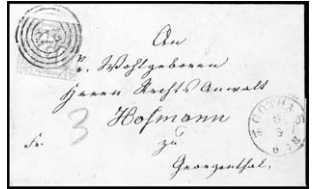 An
Wohlgeboren
Herrn Rechts Anwalt
Hofmann
Fr.
3
zu
Georgenthal.
GOTHA